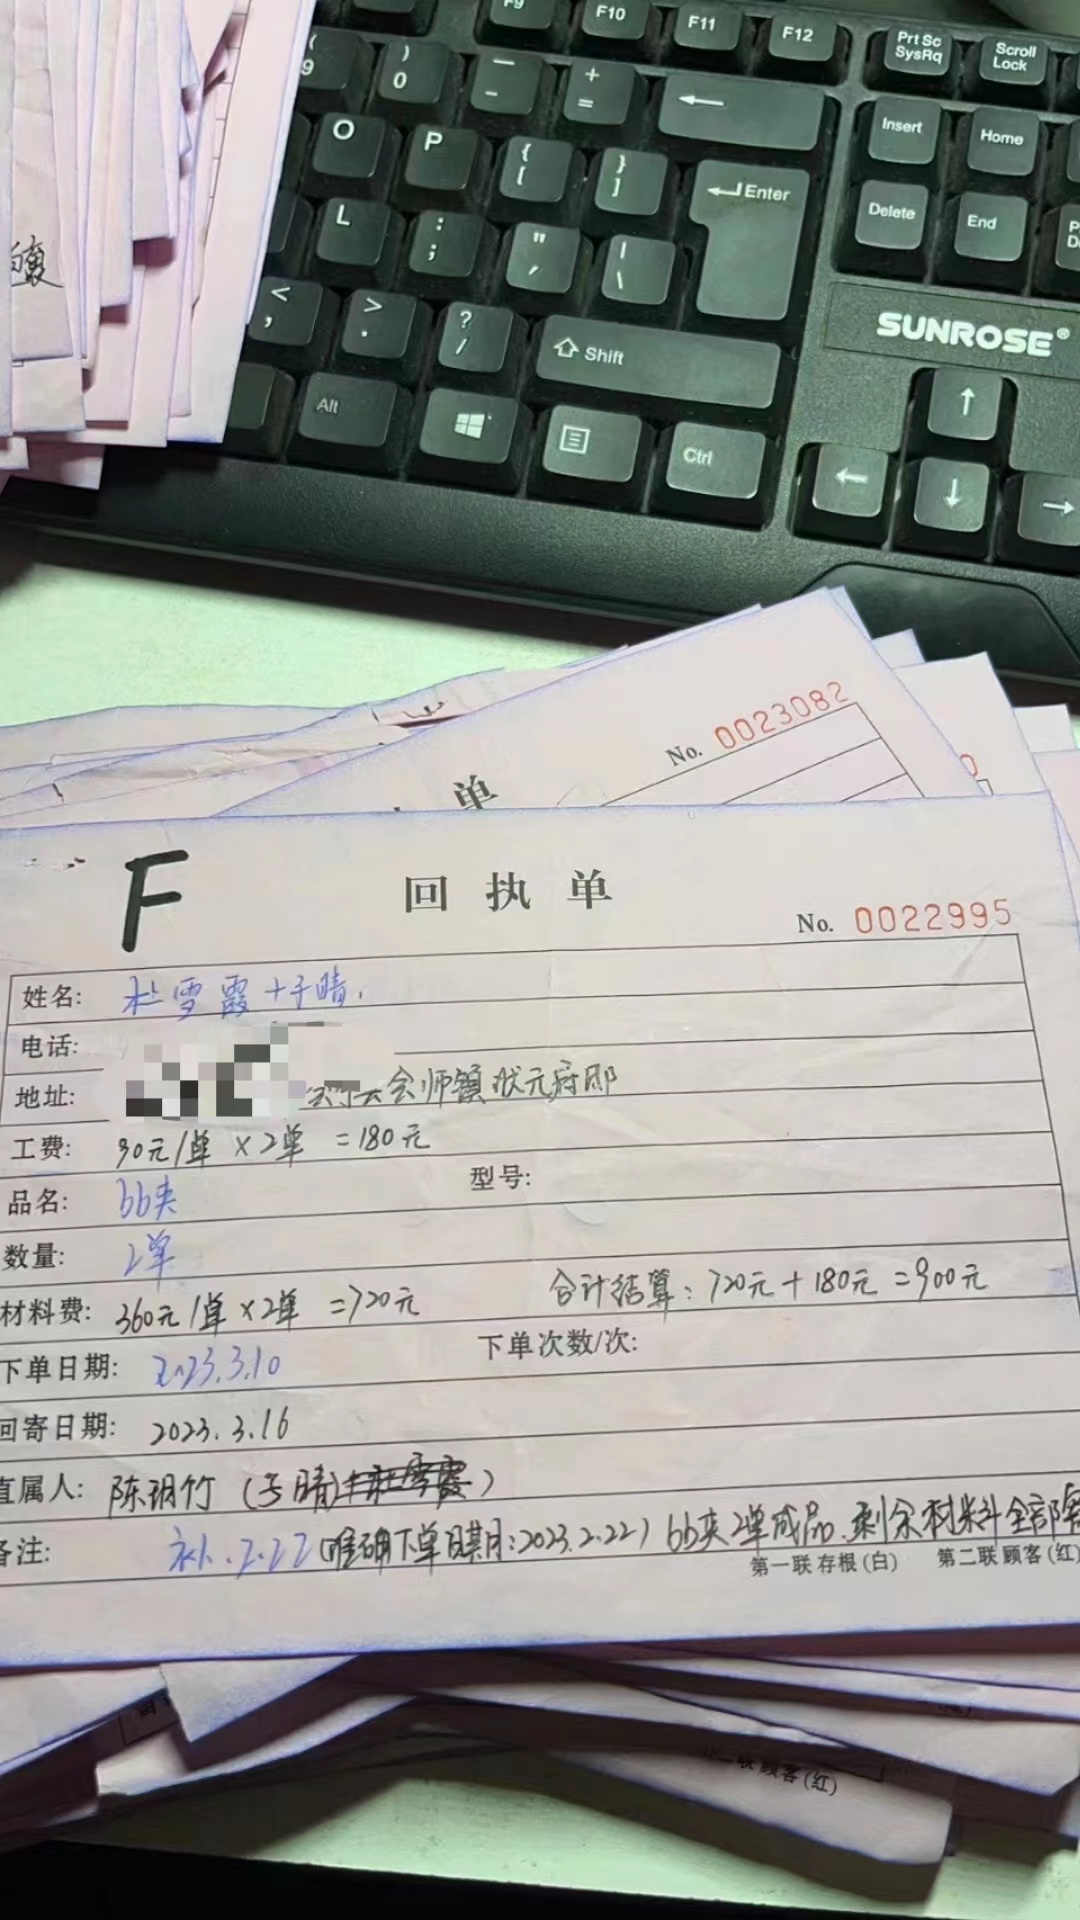 F9 F10 F11 F12 Prt Sc SysRq Scroll Lock
( 9 ) 0 — - + = ←
O P { [ } ] ↵Enter Insert Home
L : ; " ' | \ Delete End
< , > . ? / Shift
SUNROSE®
Alt Ctrl
↑
← ↓ →
No. 0023082
单
F
回执单
No. 0022995
姓名: 杜雪霞+于晴.
电话:
地址: 会师镇状元府邸
工费: 90元/单 × 2单 = 180元
品名: bb夹 型号:
数量: 2单
材料费: 360元/单×2单 =720元 合计结算: 720元+180元=900元
下单日期: 2023.3.10 下单次数/次:
回寄日期: 2023.3.16
直属人: 陈玥竹(于晴)
备注: 补.2.22(准确下单日期:2023.2.22) bb夹2单成品.剩余材料全部寄
第一联 存根(白) 第二联 顾客(红)
二联 顾客(红)